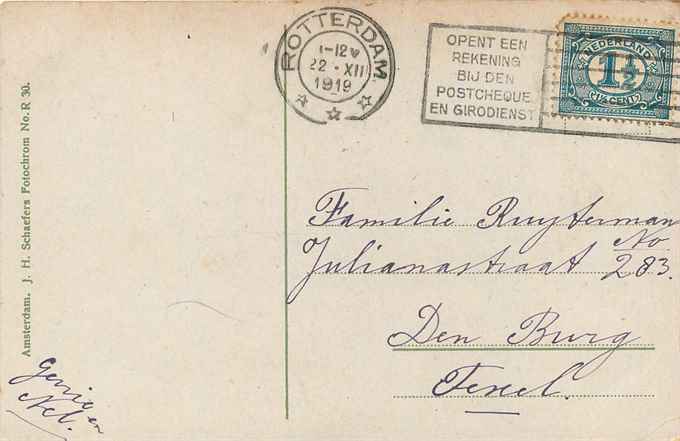 ROTTERDAM
1-12V
22·XII
1919
OPENT EEN
REKENING
BIJ DEN
POSTCHEQUE
EN GIRODIENST
NEDERLAND
1½
(1½ CENT)
Familie Ruyterman
Julianastraat No 283.
Den Burg
Texel.
Amsterdam. J. H. Schaefers Fotochrom No. R 30.
en
Nel.